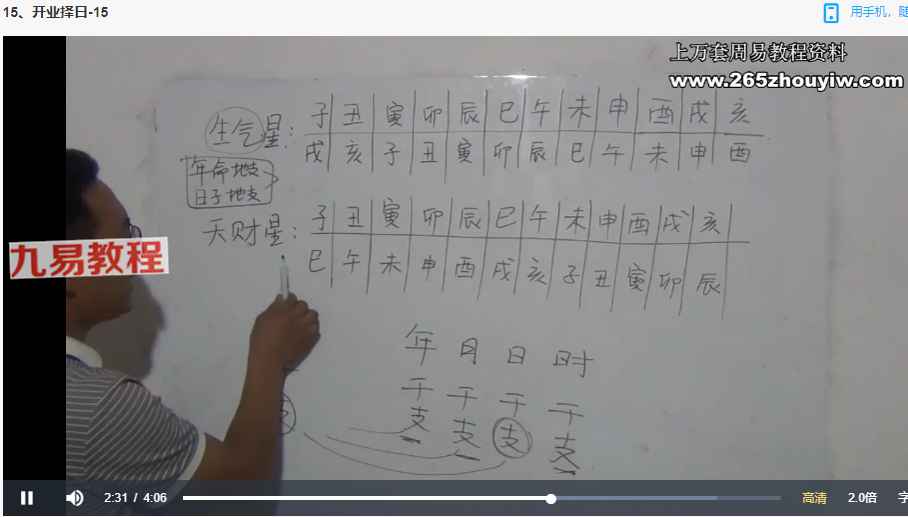 15、开业择日-15
用手机，随
上万套周易教程资料
www.265zhouyiw.com
生气星： 子 丑 寅 卯 辰 巳 午 未 申 酉 戌 亥
戌 亥 子 丑 寅 卯 辰 巳 午 未 申 酉
年命地支
日子地支
天财星： 子 丑 寅 卯 辰 巳 午 未 申 酉 戌 亥
巳 午 未 申 酉 戌 亥 子 丑 寅 卯 辰
九易教程
年 月 日 时
干 干 干 干
支 支 支 支 支
2:31 / 4:06 高清 2.0倍 字